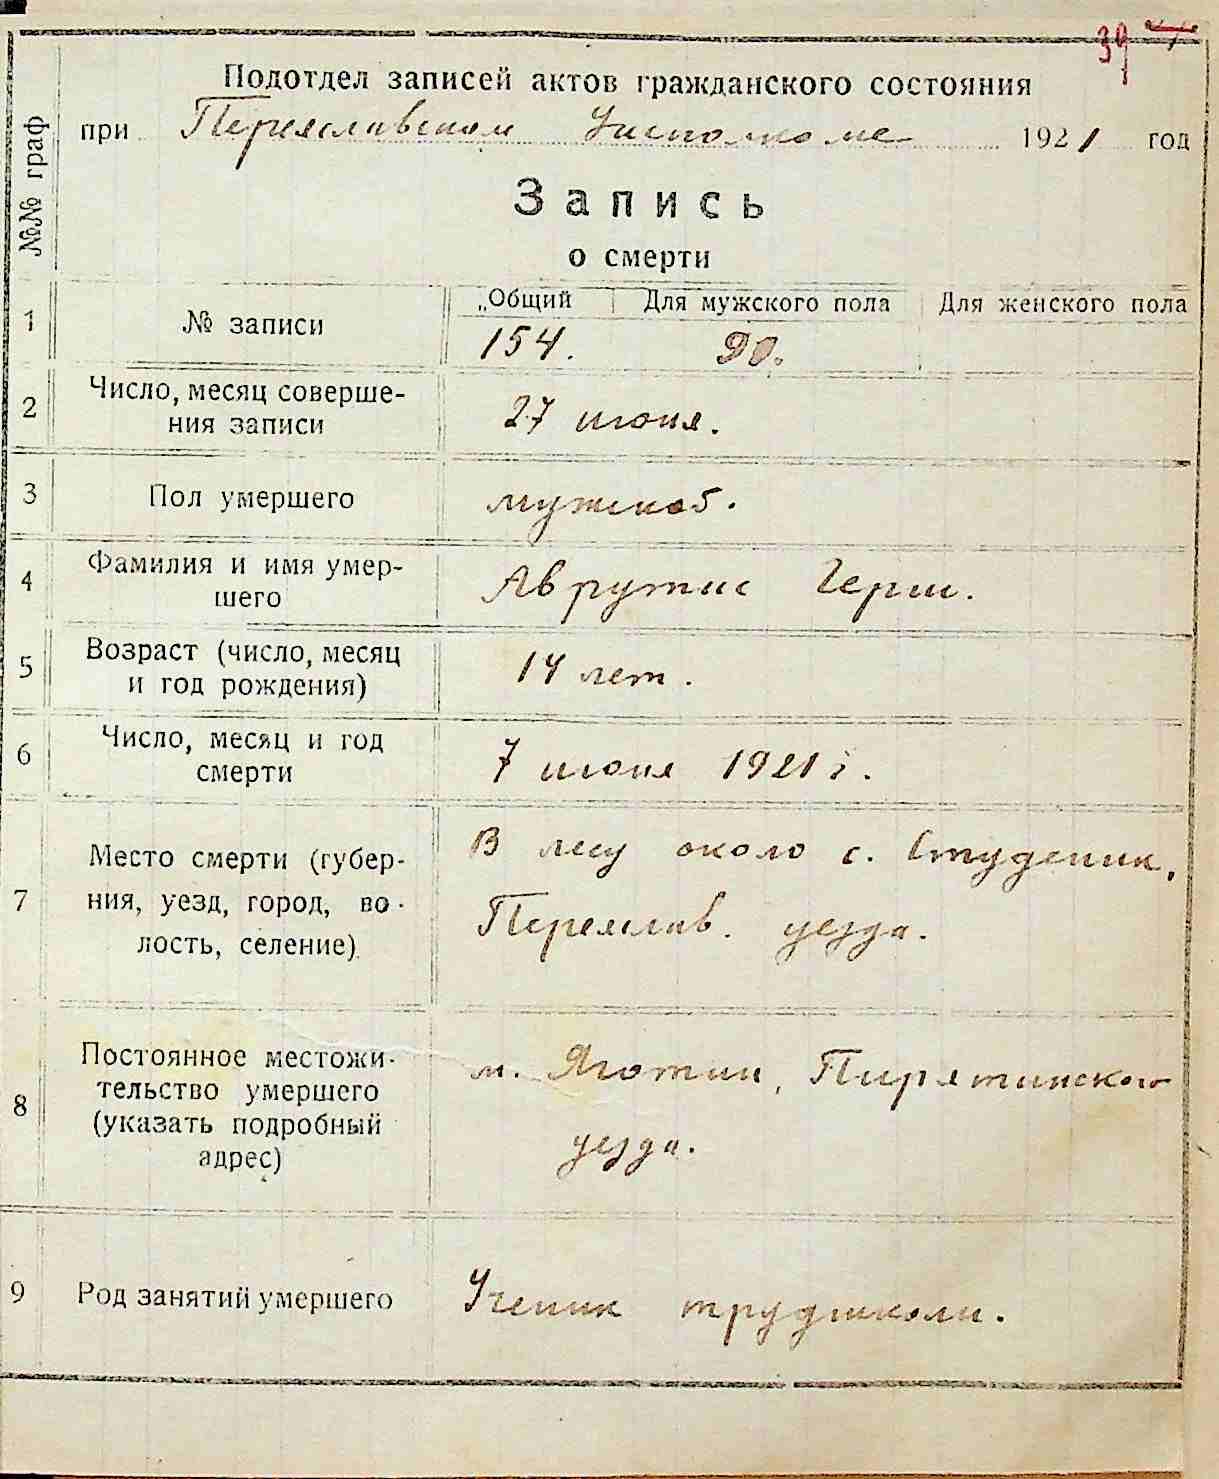 39
Подотдел записей актов гражданского состояния
при Переяславском Исполкоме 1921 год
№№ граф
Запись
о смерти
1 № записи „Общий Для мужского пола Для женского пола
154. 90.
2 Число, месяц соверше-
ния записи
27 июня.
3 Пол умершего мужской.
4 Фамилия и имя умер-
шего
Аврутис Герш.
5 Возраст (число, месяц
и год рождения)
14 лет.
6 Число, месяц и год
смерти
7 июня 1921 г.
7 Место смерти (губер-
ния, уезд, город, во-
лость, селение)
В лесу около с. Студеник,
Переяслав. уезда.
8 Постоянное местожи-
тельство умершего
(указать подробный
адрес)
м. Яготин, Пирятинского
уезда.
9 Род занятий умершего Ученик трудшколи.